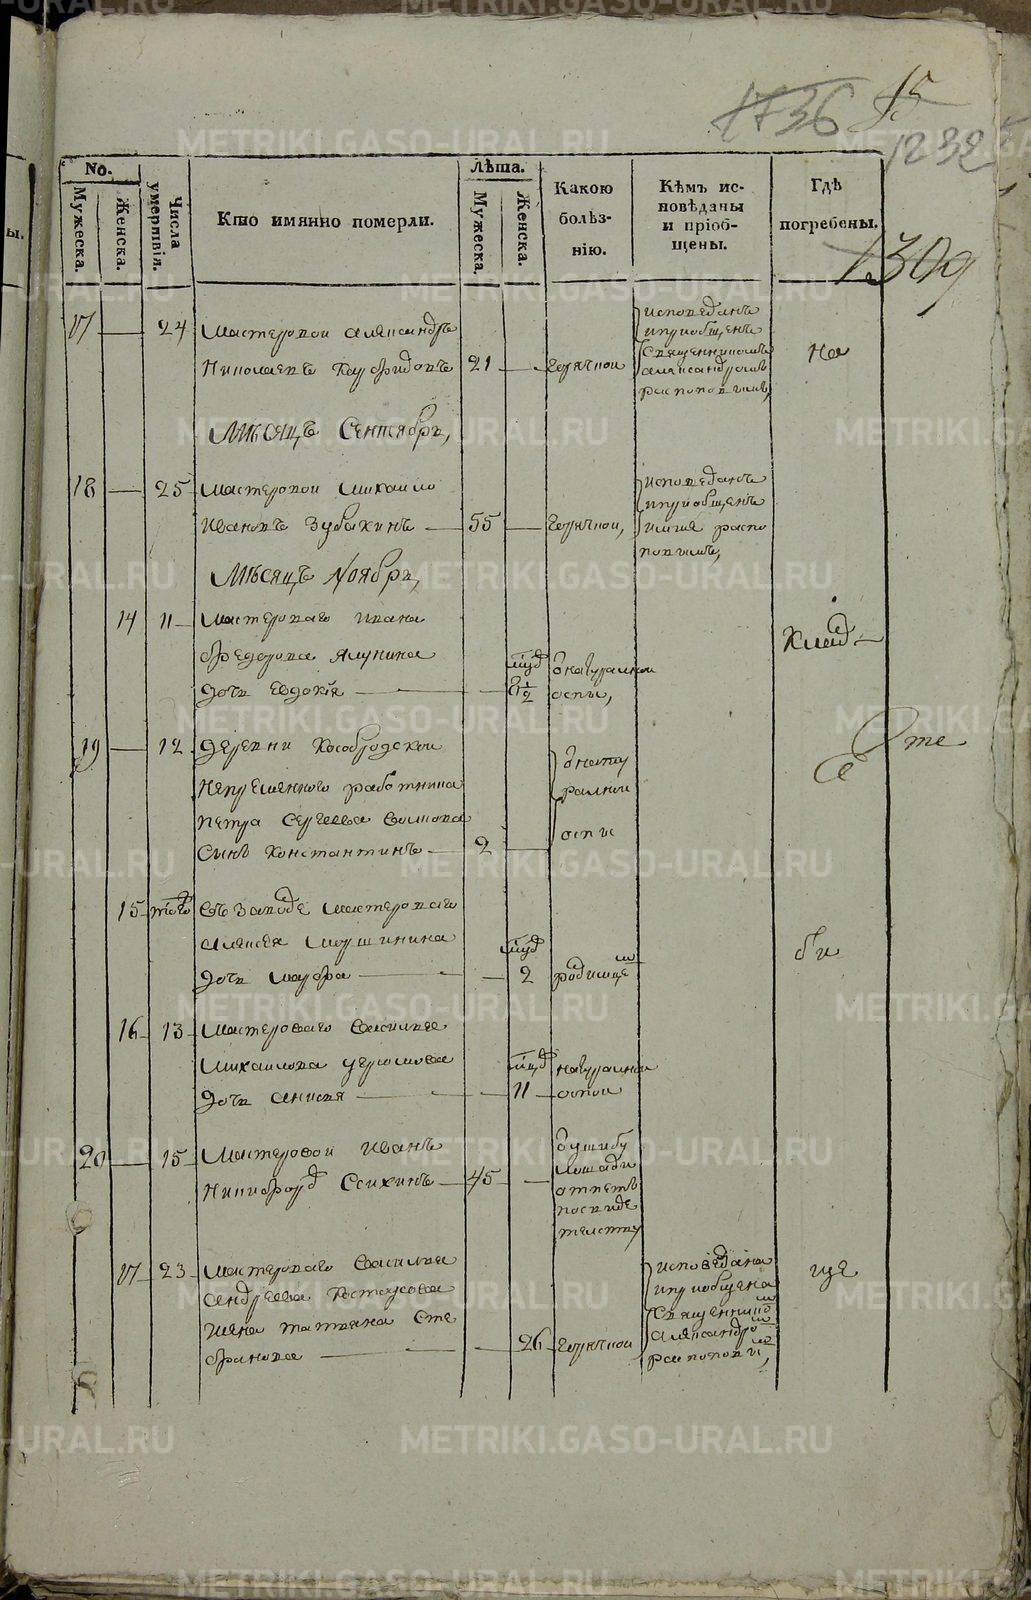 15
1736
1232
1309
No.
Мужеска.
Женска.
Числа умертвія.
Кто имянно померли.
Лѣта.
Мужеска.
Женска.
Какою
болѣз-
нію.
Кѣмъ ис-
повѣданы
и пріоб-
щены.
Гдѣ
погребены.
17 — 24 Мастеровои Александръ
Николаевъ 21 — горячкои
исповеданъ
иприобщенъ
Священникомъ
Александромъ
распоповымъ,
На
Мѣсяцъ Сентябрь,
18 — 25 Мастеровои Михаило
Ивановъ Зубакинъ — 55 — горячкои,
исповеданъ
иприобщенъ
распо
повымъ,
Мѣсяцъ Ноябрь,
14 11 Мастероваго Ивана
Федорова Ялунина
дочь Евдокія — — 8 1/2
натуралной
оспы,
Клад
19 — 12 деревни Кособродской
Непременного работника
Петра Сергеева Волкова
Сынъ Константинъ — 2 —
натура
ралной
оспы
бите
15 того Въ Заводе Мастероваго
Алексея Моршинина
дочь Марфа — — 2 родимце
би
16 13 Мастероваго Василья
Михаилова
дочь Анисья — — 11
натуралной
оспои
20 — 15 Мастеровои Иванъ
Никифоровъ 45 —
ушибу
лошади
отпетъ
посвиде
телству
17 23 Мастероваго Василья
Андреева Костоусова
Жена Татьяна Сте
фанова — — 26 горячкои
исповедана
иприобщена
Священником
Александром
распоповым,
ще
METRIKI.GASO-URAL.RU